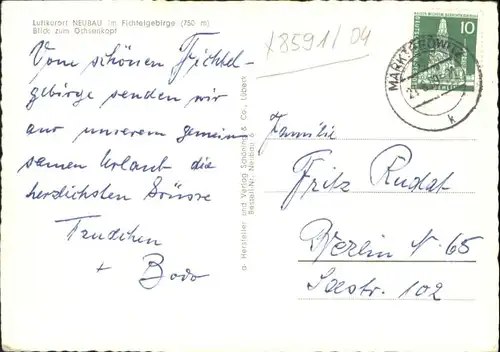 Luftkurort NEUBAU im Fichtelgebirge (750 m)
Blick zum Ochsenkopf
x8591/04
10
MARKTREDWITZ
k
Vom schönen Fichtel-
gebirge senden wir
aus unserem gemein
samen Urlaub die
herzlichsten Grüsse
+ Bodo
Hersteller und Verlag Schöning & Co., Lübeck
Bestell-Nr. Neubau 6
Familie
Fritz Rudat
Berlin N. 65
Seestr. 102